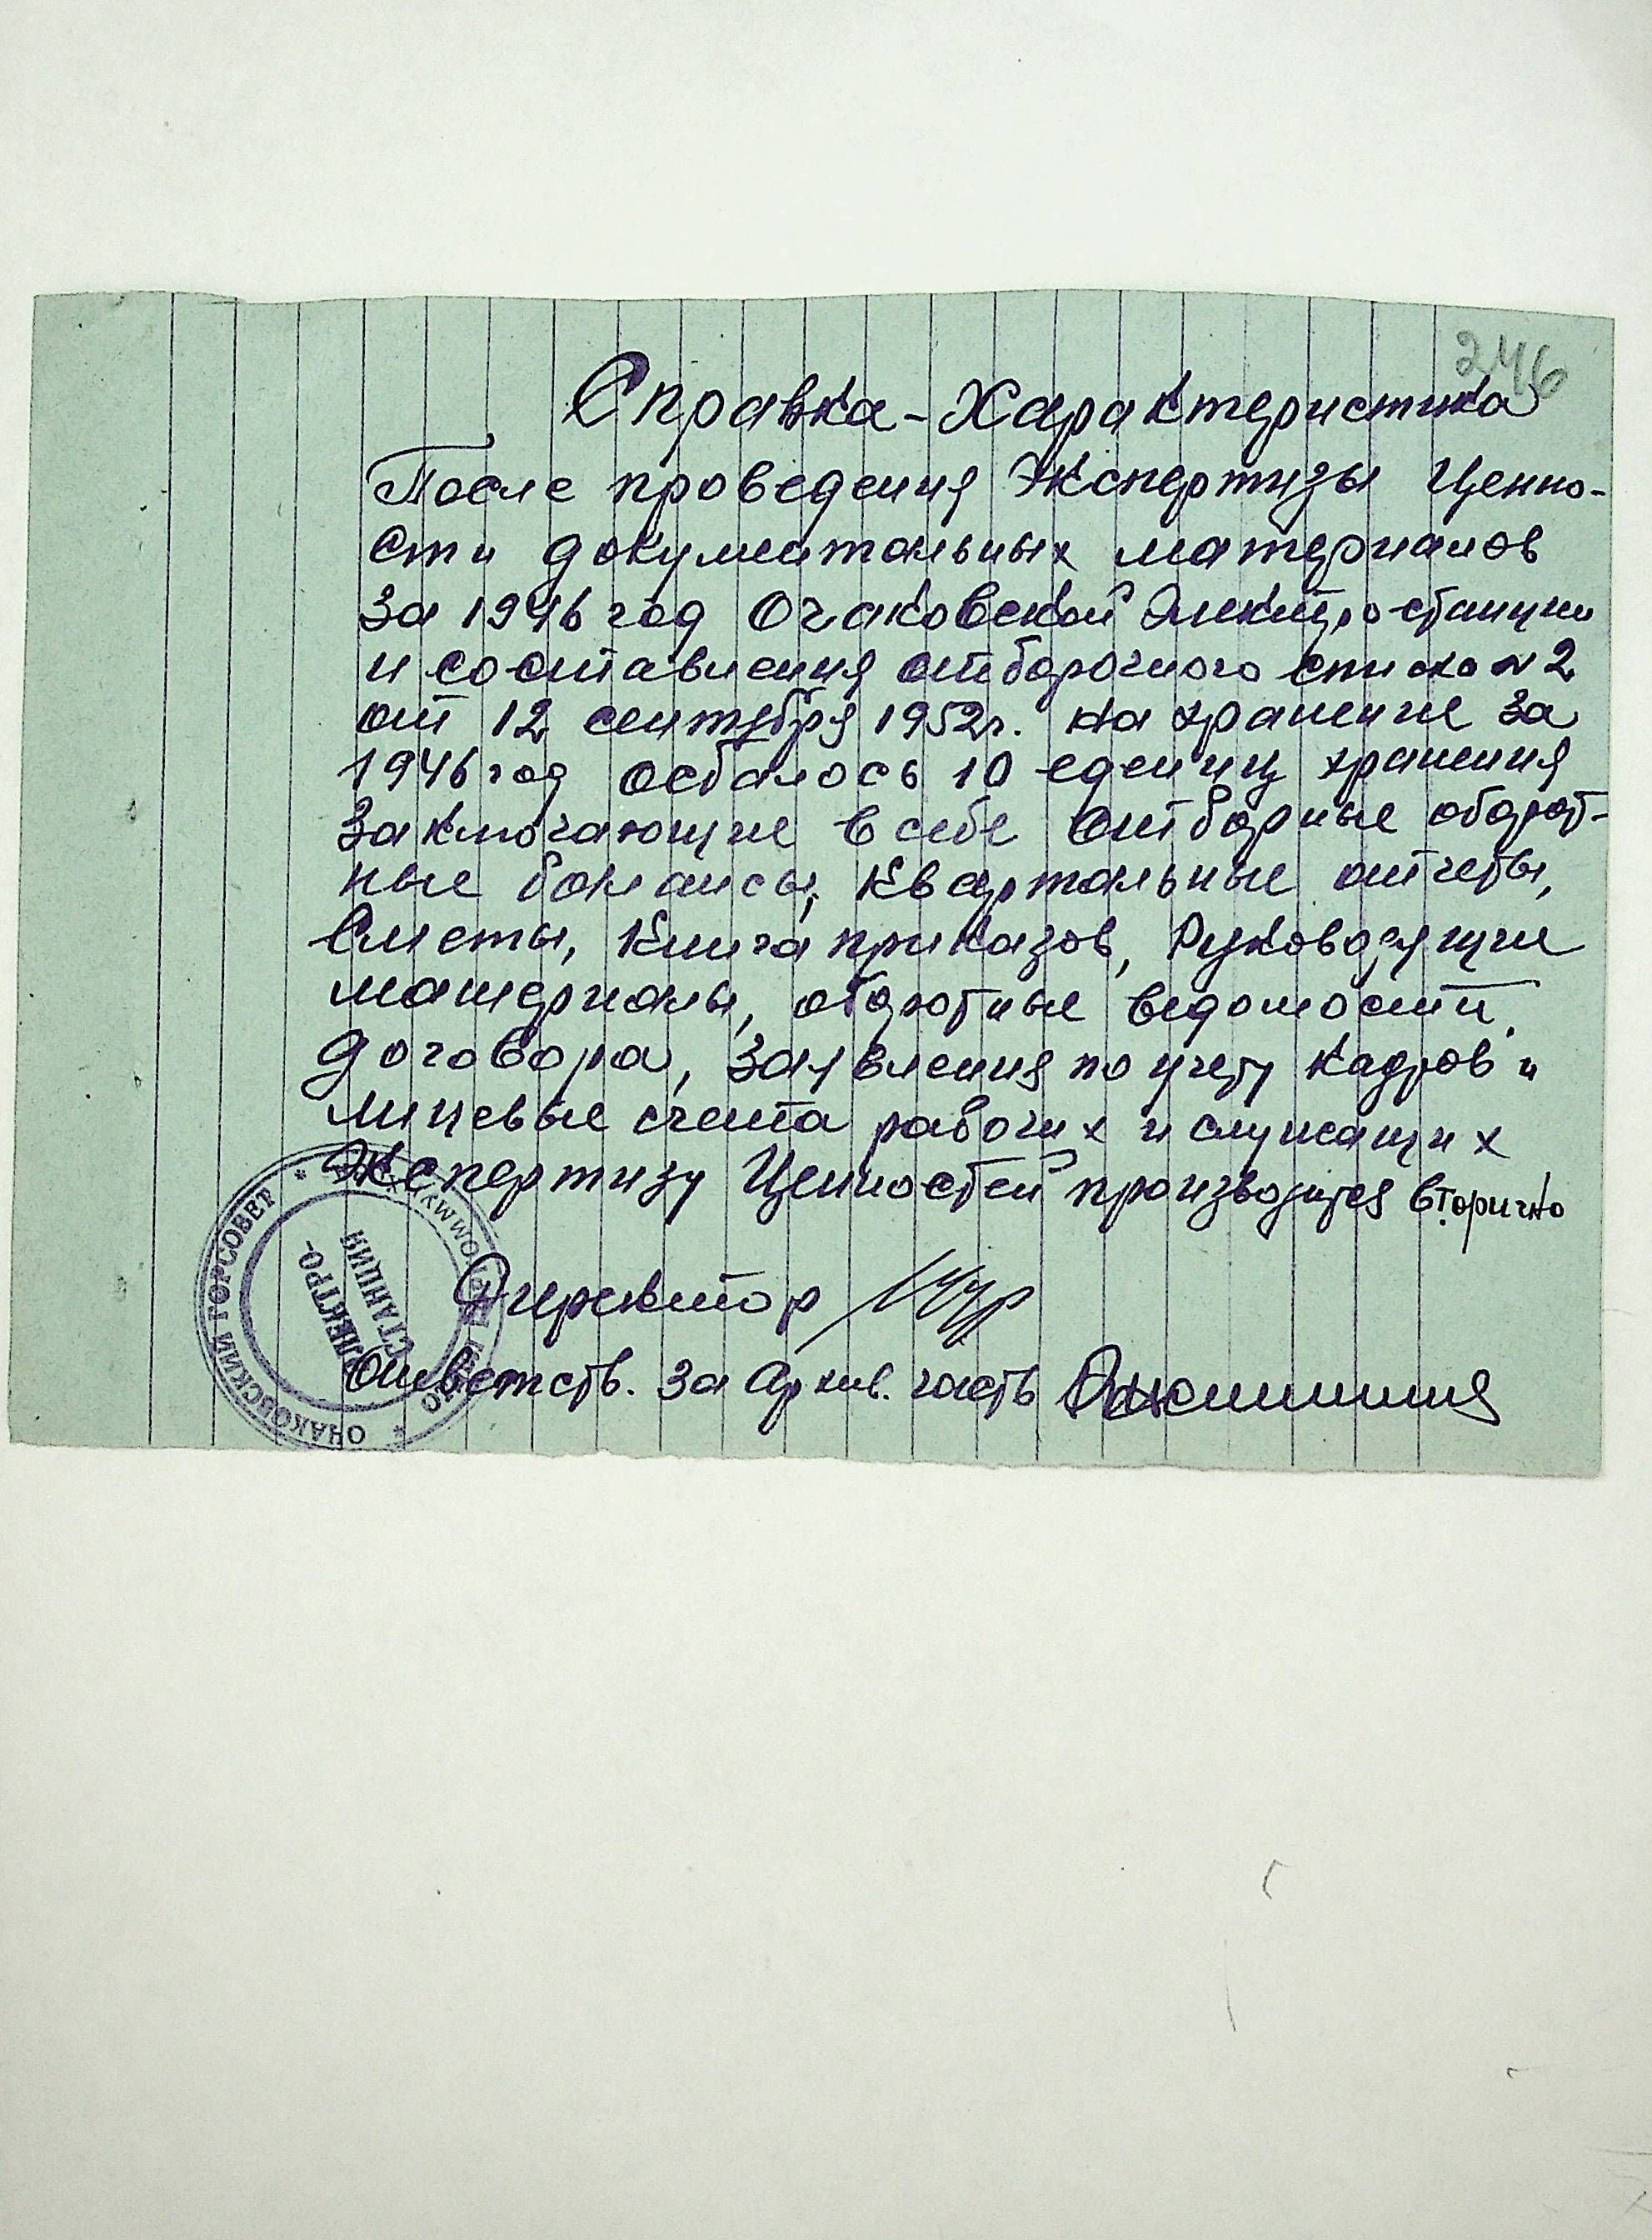 246
Справка-Характеристика
После проведения Экспертизы Ценно-
сти документальных материалов
За 1946 год Очаковской Электростанции
и составления отборочного списка № 2
от 12 сентября 1952г. на хранение за
1946 год осталось 10 едениц хранения
Заключающие в себе оборот-
ные балансы, Квартальные отчеты,
Сметы, Книга приказов, Руководящие
материалы, оборотные ведомости,
Договора, Заявления по учету Кадров и
лицевые счета рабочих и служащих
Экспертизу Ценностей производится вторично
Директор
Ответств. За Архив. часть
ОЧАКОВСКИЙ ГОРСОВЕТ
ЭЛЕКТРО-
СТАНЦИЯ